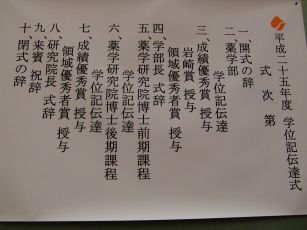 平成二十五年度 学位記伝達式
式 次 第
一、開式の辞
二、薬学部
学位記伝達
三、成績優秀賞 授与
岩崎賞 授与
領域優秀者賞 授与
四、学部長 式辞
五、薬学研究院博士前期課程
学位記伝達
六、薬学研究院博士後期課程
学位記伝達
七、成績優秀賞 授与
領域優秀者賞 授与
八、研究院長 式辞
九、来賓 祝辞
十、閉式の辞